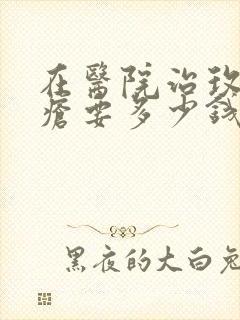 在醫院治玫
瘡要多少錢
黑夜的大白兔